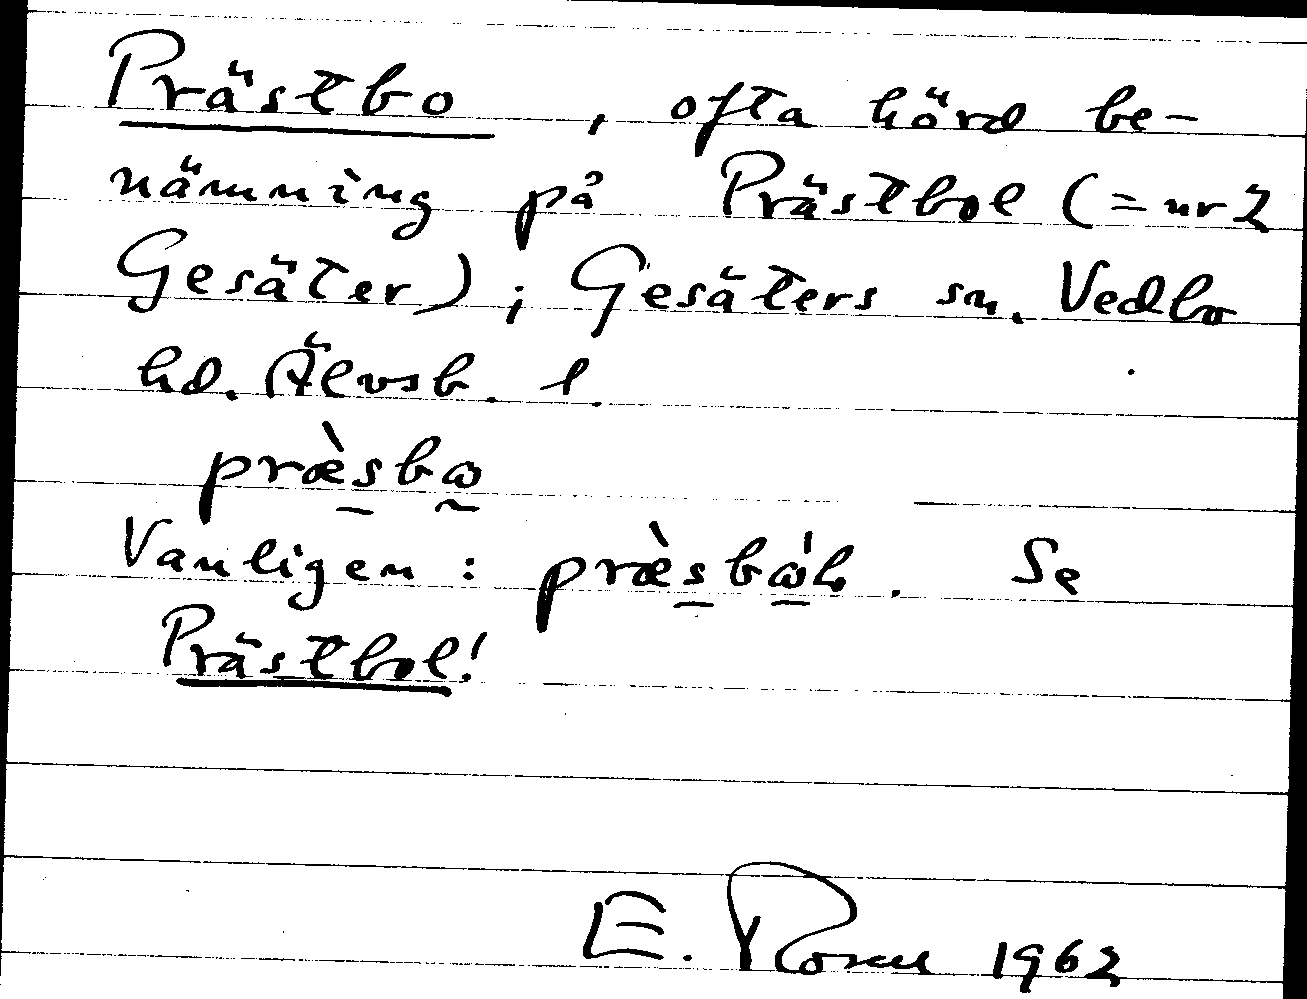 Prästbo, ofta hörd be-
nämning på Prästbol (= nr 2
Gesäter); Gesäters sn. Vedbo
hd. Älvsb. l.
præ̀sbω
Vanligen: præ̀sbω̍l. Se
Prästbol!
E. 1962